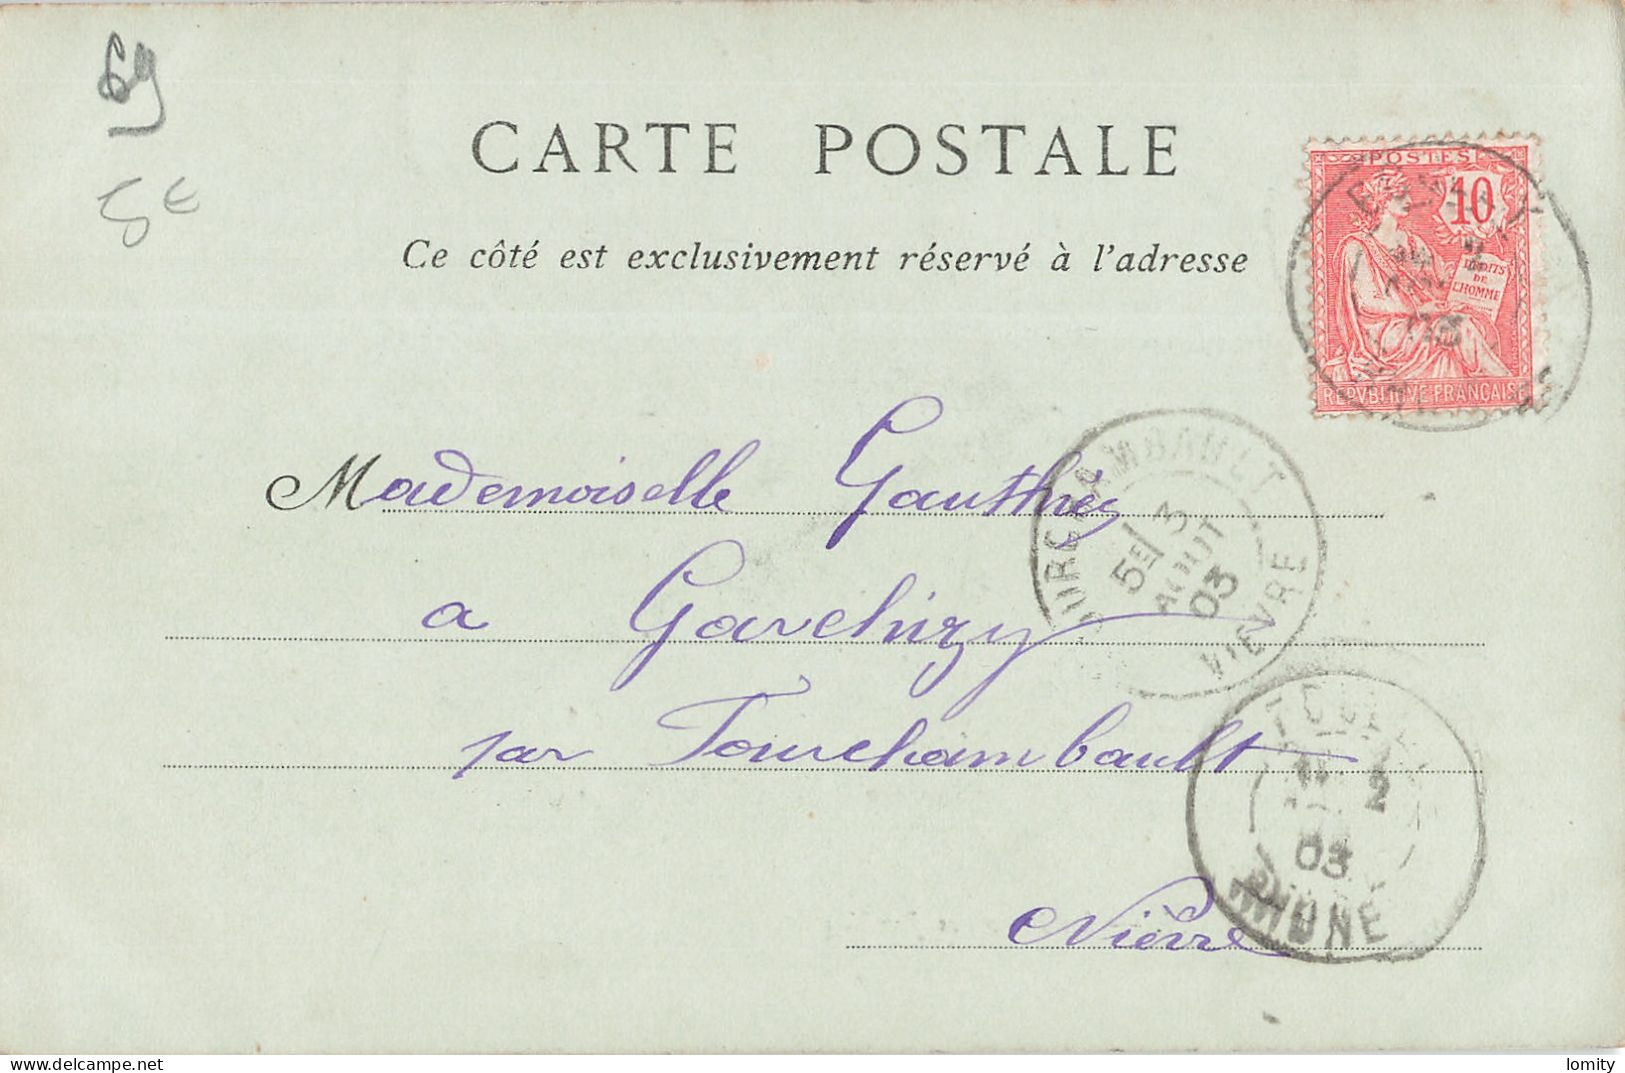 69
5€
CARTE POSTALE
Ce côté est exclusivement réservé à l'adresse
POSTES
10
DROITS
DE
L'HOMME
REPVBLIQVE FRANÇAISE
03
Mademoiselle Gauthey
a Garchizy
par Fourchambault
Nièvre
OURCHAMBAULT
5E 3
AOUT
03
NIEVRE
2
03
RHONE
lomity